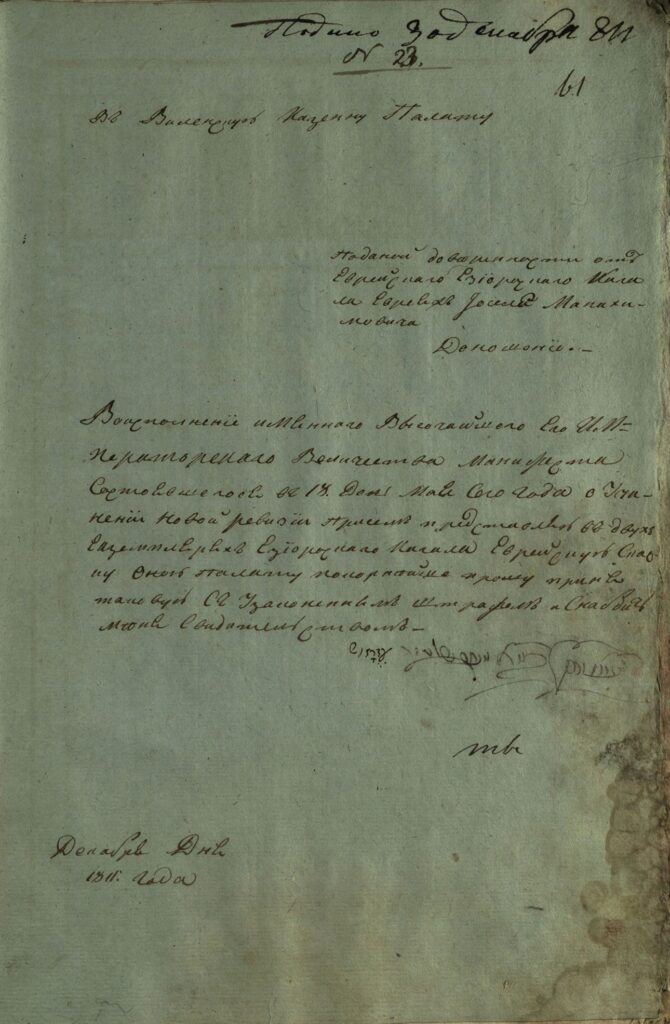 Подано 30 декабря 811
N 23.
61
Въ Виленскую Казенну Палату
Поданой доверенности отъ
Еврейского Езіоросского Кага
ла Еврей Іоселя Манахи-
мовича
Доношеніе.—
Во исполненіе имѣннаго Высочайшого Его ИМ-
ператорского Величества Манифеста
въ 18. День Маія Сего года о Учи-
неніи Новой ревизіи при семъ представляя въ двухъ
Екземплярахъ Езіоросского Кагала Еврейскую Сказ
ку Оной Палату покорнѣйше прошу приня
таковую Съ Узаконеннымъ штрафомъ и Снабдить
Меня Свидѣтельствомъ—
Декабря Дня
1811. года